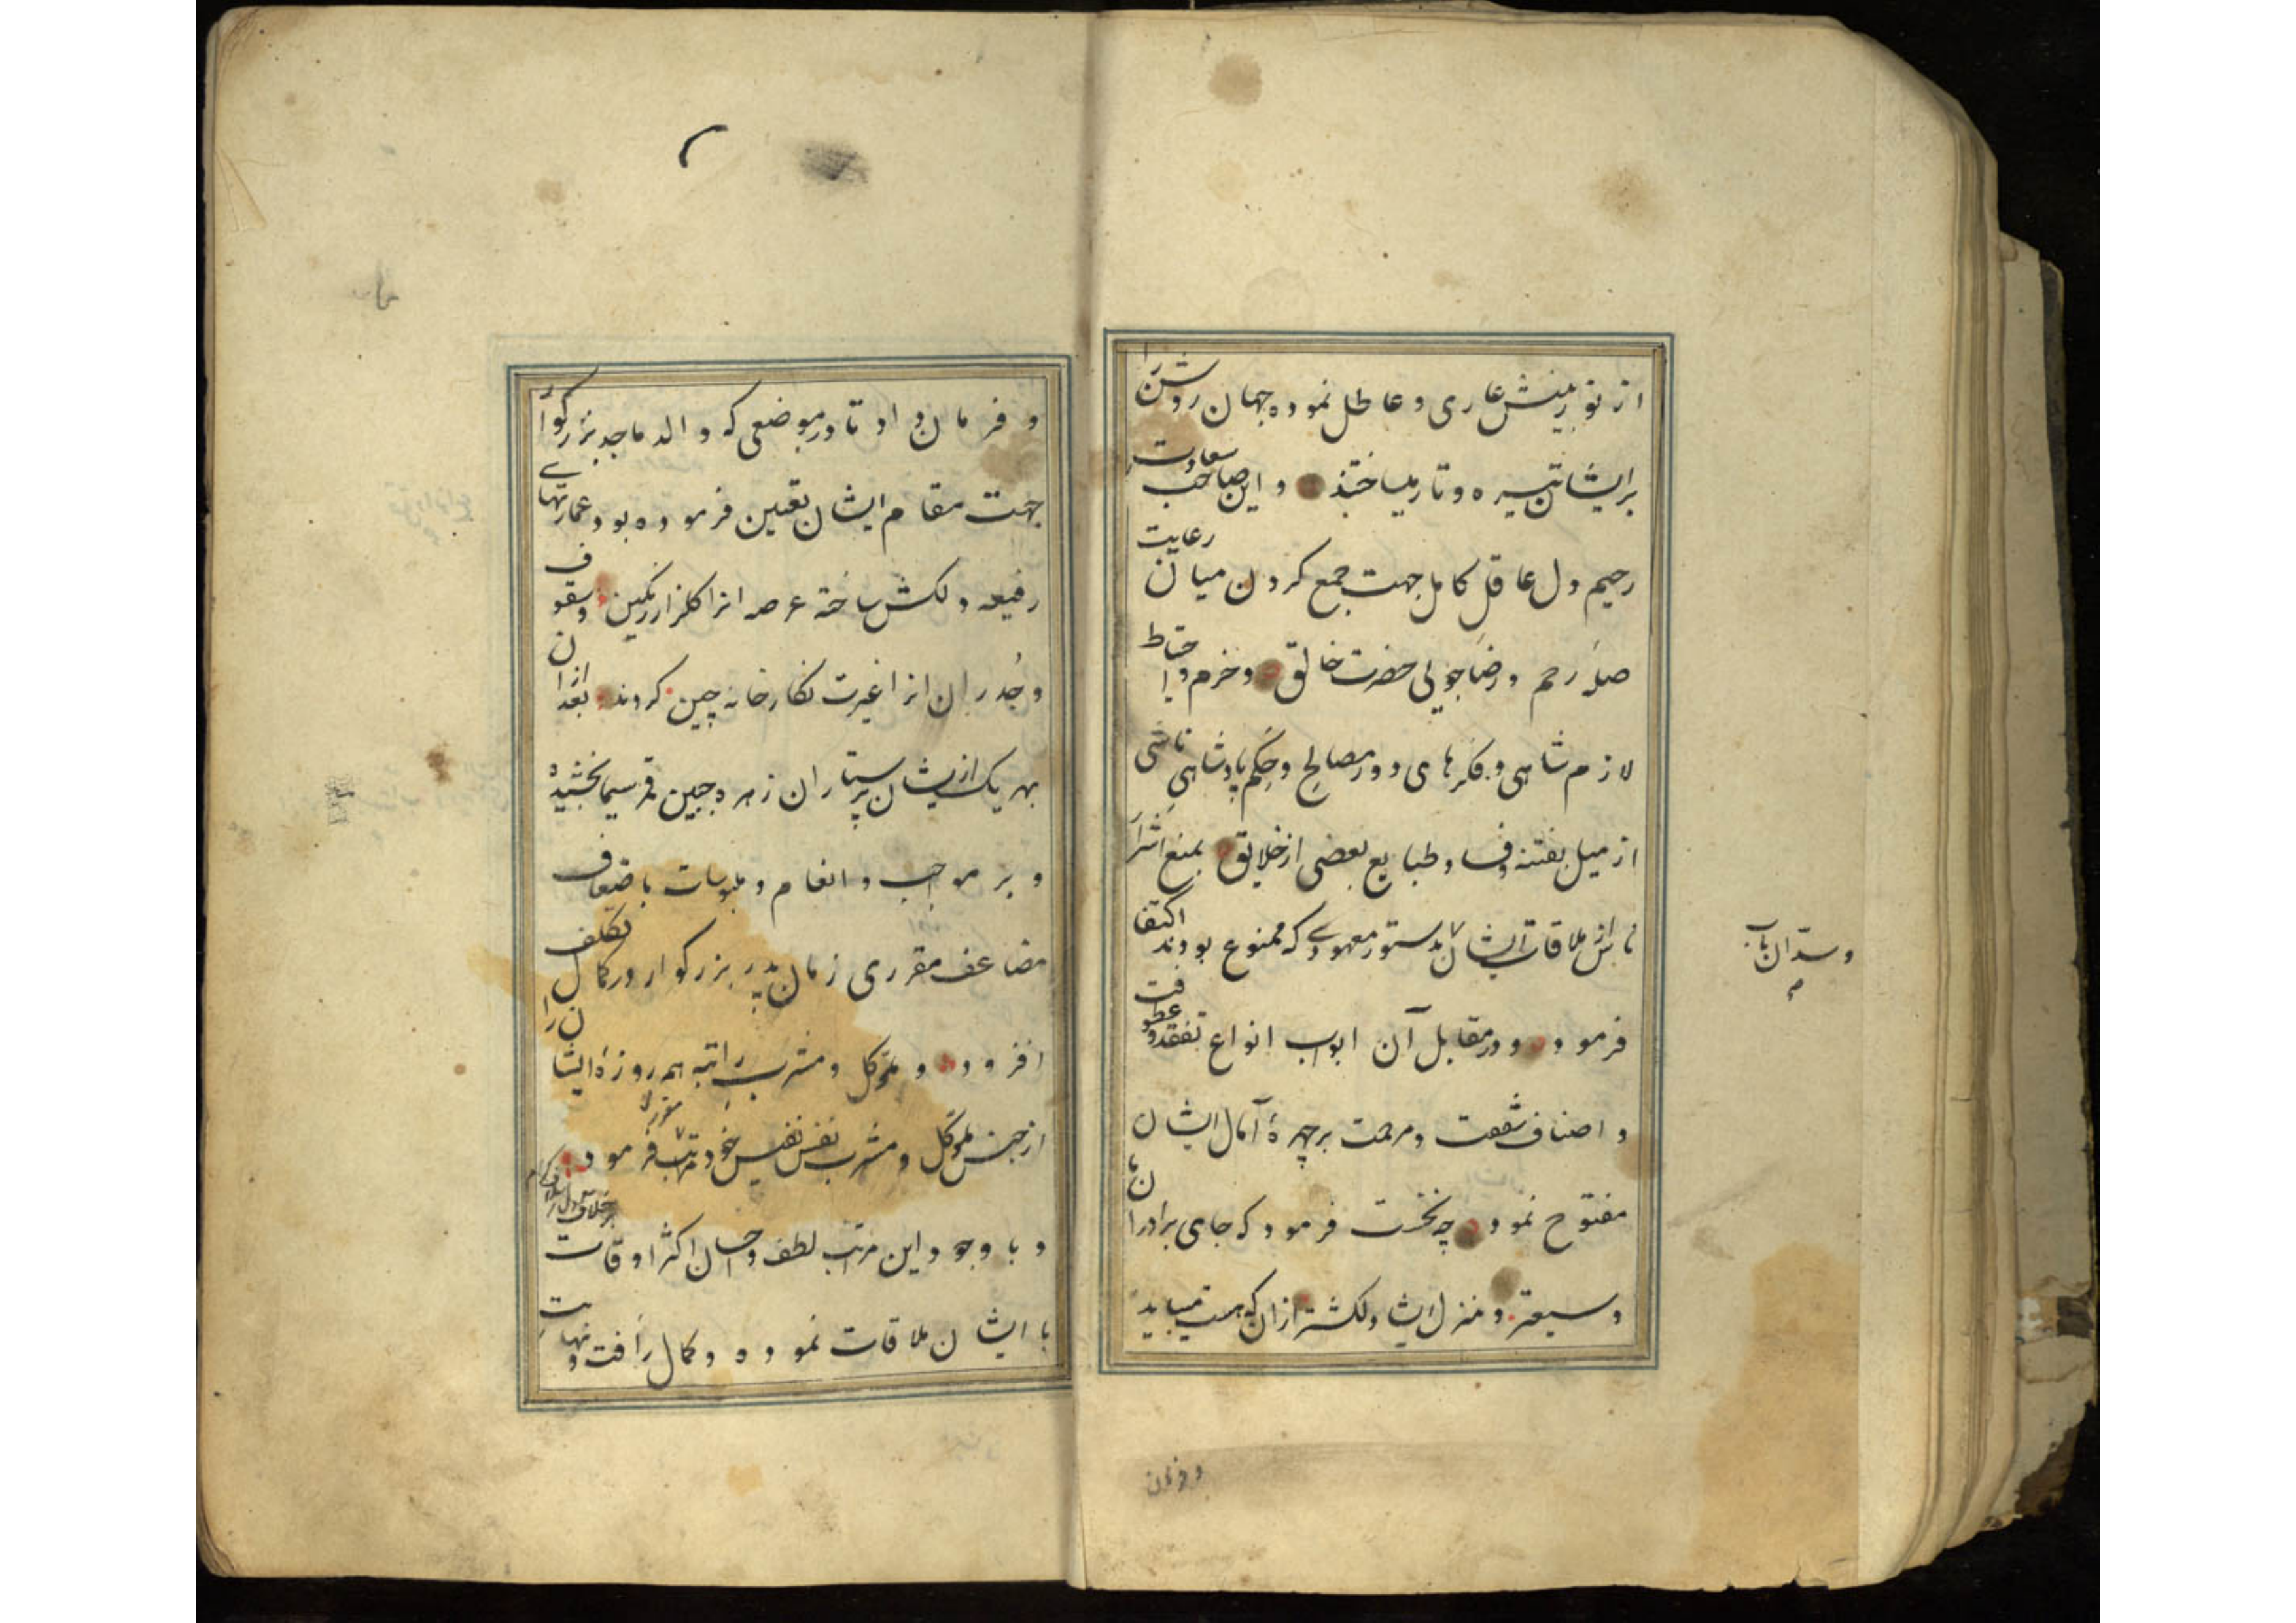 از نور بینش عاری و عاطل نموده جهان روشن را
بر ایشان تیره و تار میساختند و این صاحب سعادت
رحیم دل عاقل کامل جهت جمع کردن میان رعایت
صله رحم و رضاجویی حضرت خالق و حزم و احتیاط
لازم شاهی و فکرهای دور مصالح و حکم پادشاهی ناشی
از میل بفتنه و فساد طبایع بعضی از خلایق بمنع اشرار
ناس از ملاقات ایشان بدستور معهودی که ممنوع بودند اکتفا
وسد آن باب
فرمود و در مقابل آن ابواب انواع تفقد و عطوفت
و اصناف شفقت و مرحمت بر چهرهٔ آمال ایشان
مفتوح نمود چه نخست فرمود که جای برادران ما
وسیعتر و منزل ایشان دلکشتر از آن که هست میباید
و فرمان
و فرمان داد تا در موضعی که والد ماجد بزرگوار
جهت مقام ایشان تعیین فرموده بود عمارتهای
رفیعه دلکش ساخته عرصه انرا گلزار رنگین و سقوف
و جدران انرا غیرت نگارخانه چین کردند بعد از ان
بهر یک از ایشان پرستاران زهره جبین قمر سیما بخشیده
و بر مواجب و انعام و ملبوسات باضعاف
مضاعف مقرری زمان پدر بزرگوار در کمال تکلف
افزود و مأکل و مشرب راتبه هر روزهٔ ایشان را
از جنس مأکل و مشرب نفس نفیس خود مرتب فرمود
مقرر و
و با وجود این مراتب لطف و احسان اکثر اوقات
بر خلاف اسلاف کرام
با ایشان ملاقات نموده و کمال رأفت و نهایت